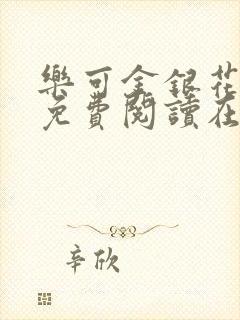 樂可金銀花
免費閱讀在
辛欣